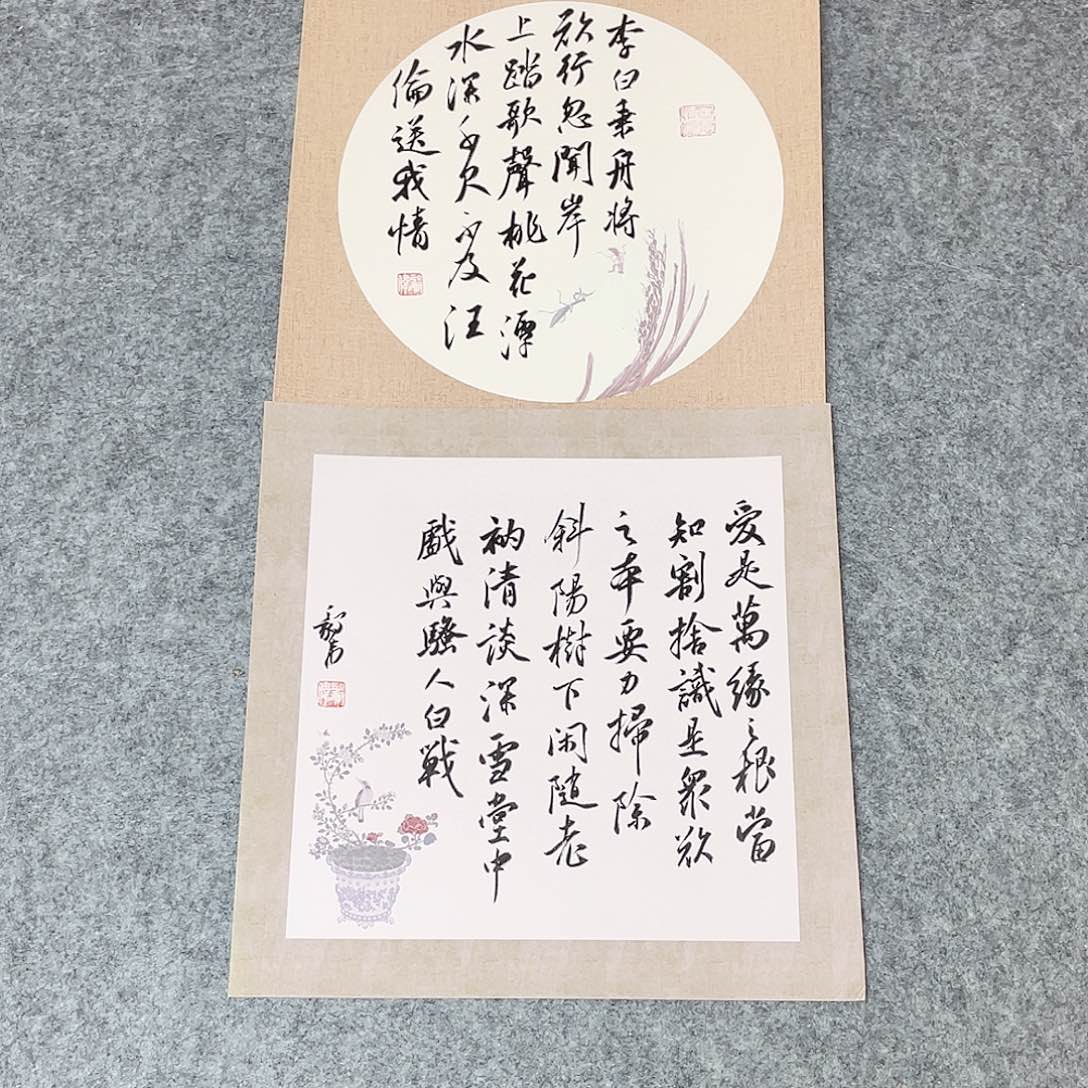 李白乘舟將
欲行忽聞岸
上踏歌聲桃花潭
水深千尺不及汪
倫送我情
愛是萬緣之根當
知割捨識是衆欲
之本要力掃除
斜陽樹下閑隨老
衲清談深雪堂中
戲與騷人白戰